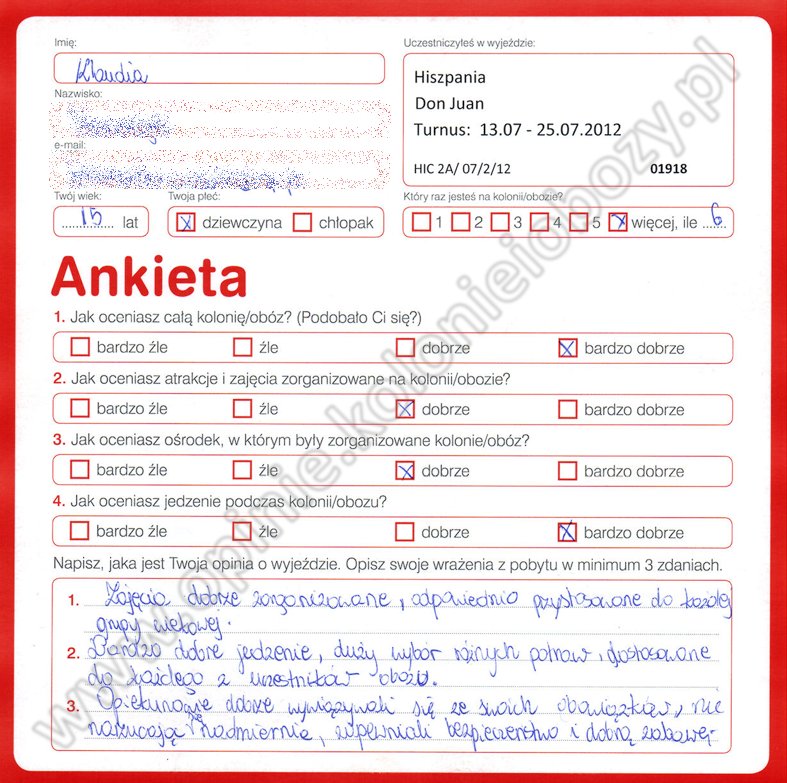 Imię:
Uczestniczyłeś w wyjeździe:
Klaudia
Hiszpania
Nazwisko:
Don Juan
Turnus: 13.07 - 25.07.2012
e-mail:
HIC 2A/ 07/2/12 01918
Twój wiek: Twoja płeć: Który raz jesteś na kolonii/obozie?
15 lat x dziewczyna chłopak 1 2 3 4 5 x więcej, ile 6
Ankieta
1. Jak oceniasz całą kolonię/obóz? (Podobało Ci się?)
bardzo źle źle dobrze x bardzo dobrze
2. Jak oceniasz atrakcje i zajęcia zorganizowane na kolonii/obozie?
bardzo źle źle x dobrze bardzo dobrze
3. Jak oceniasz ośrodek, w którym były zorganizowane kolonie/obóz?
bardzo źle źle x dobrze bardzo dobrze
4. Jak oceniasz jedzenie podczas kolonii/obozu?
bardzo źle źle dobrze x bardzo dobrze
Napisz, jaka jest Twoja opinia o wyjeździe. Opisz swoje wrażenia z pobytu w minimum 3 zdaniach.
1. Zajęcia dobrze zorganizowane, odpowiednio przystosowane do każdej
grupy wiekowej.
2. Bardzo dobre jedzenie, duży wybór różnych potraw, dostosowane
do każdego z uczestników obozu.
3. Opiekunowie dobrze wywiązywali się ze swoich obowiązków, nie
narzucając się nadmiernie, zapewniali bezpieczeństwo i dobrą zabawę.
www.opinie.kolonieiobozy.pl